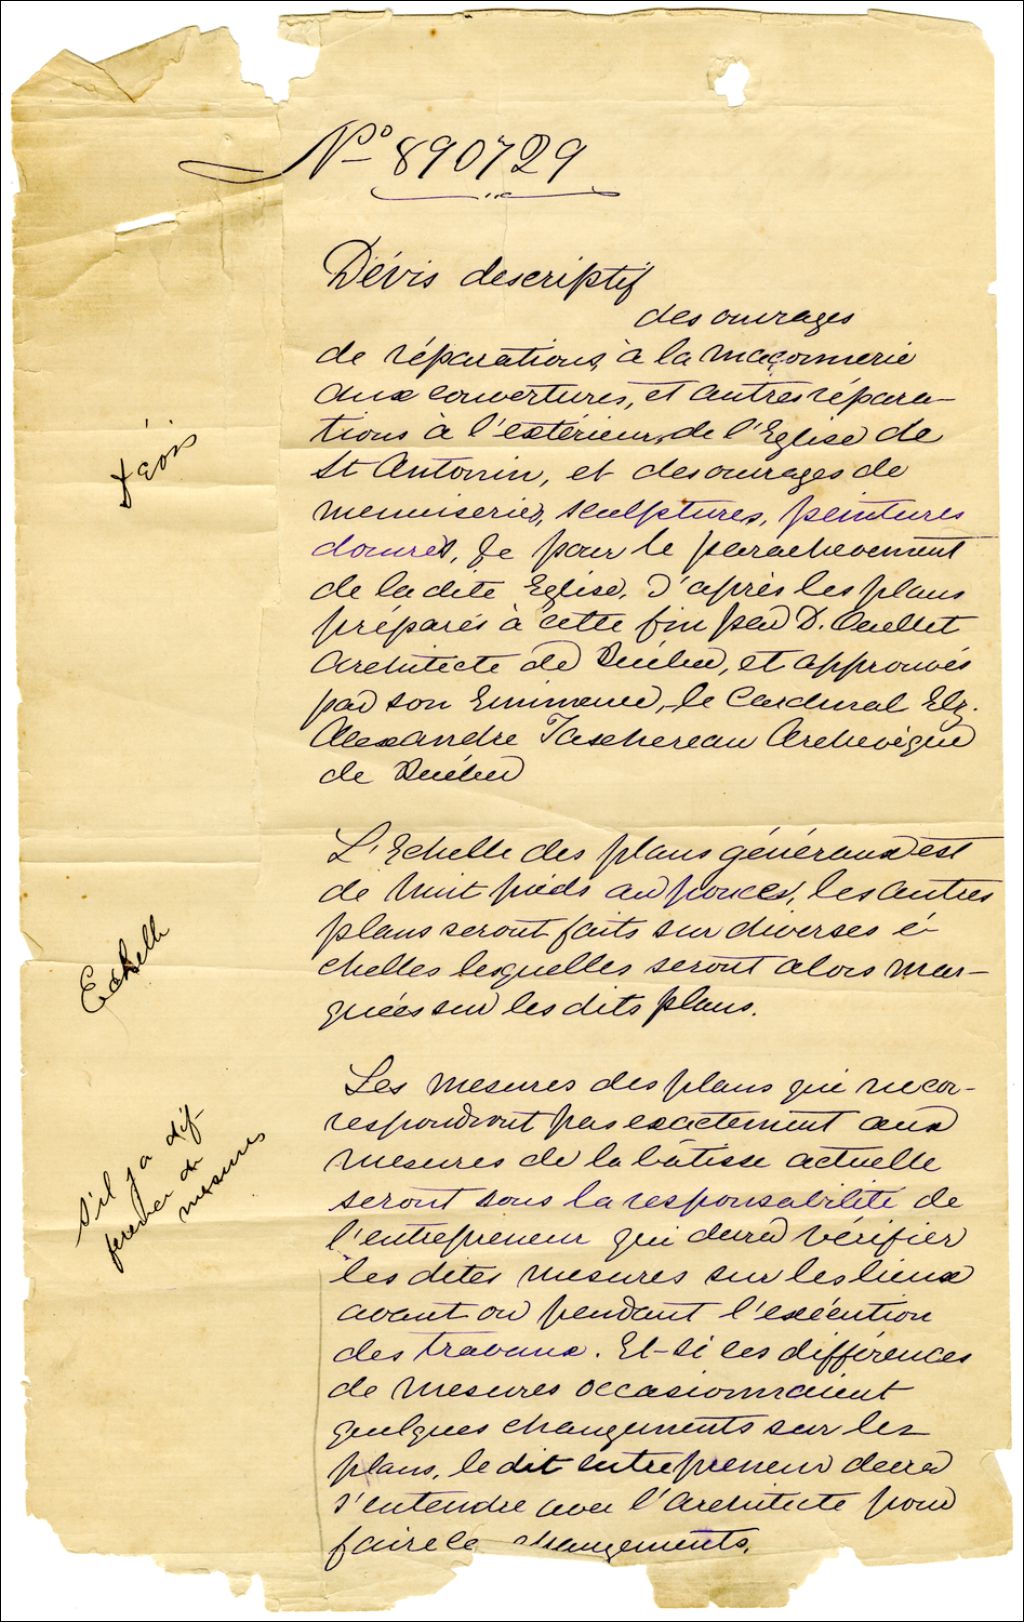 No 890729
Dévis descriptif
des ouvrages
de réparations, à la maçonnerie
aux couvertures, et autres répara-
tions à l'extérieur, de l'Eglise de
St Antonin, et des ouvrages de
Dévis
menuiseries, sculptures, peintures
dorures, &c pour le parachèvement
de la dite Eglise. D'après les plans
préparés à cette fin par D. Ouellet
Architecte de Québec, et approuvés
par son Eminence, le Cardinal Elz.
Alexandre Taschereau Archevêque
de Québec
L'Echelle des plans généraux est
de huit pieds au pouces, les autres
plans seront faits sur diverses é-
Echelle
chelles lesquelles seront alors mar-
quées sur les dits plans.
Les mesures des plans qui ne cor-
respondront pas exactement aux
mesures de la bâtisse actuelle
s'il y a dif
ference de
mesures
seront sous la responsabilité de
l'entrepreneur qui devra vérifier
les dites mesures sur les lieux
avant ou pendant l'exécution
des travaux. Et si ces différences
de mesures occasionnaient
quelques changements sur les
plans, le dit entrepreneur devra
s'entendre avec l'Architecte pour
faire ce changements.